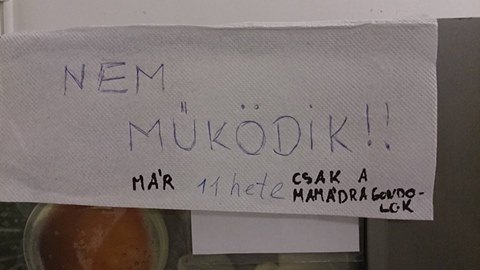 NEM
MŰKÖDIK!!
MÁR 11 hete CSAK A
MAMÁDRA GONDO-
LOK